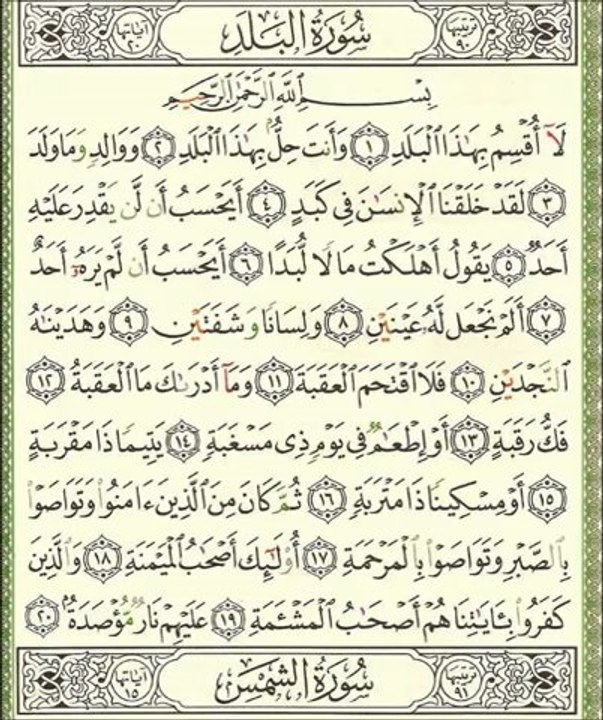 ترتيبها ٩٠ سُورَةُ الْبَلَدِ آياتها ٢٠
بِسْمِ اللَّهِ الرَّحْمَٰنِ الرَّحِيمِ
لَآ أُقْسِمُ بِهَٰذَا الْبَلَدِ ١ وَأَنتَ حِلٌّۢ بِهَٰذَا الْبَلَدِ ٢ وَوَالِدٍ وَمَا وَلَدَ
٣ لَقَدْ خَلَقْنَا الْإِنسَٰنَ فِى كَبَدٍ ٤ أَيَحْسَبُ أَن لَّن يَقْدِرَ عَلَيْهِ
أَحَدٌ ٥ يَقُولُ أَهْلَكْتُ مَالًا لُّبَدًا ٦ أَيَحْسَبُ أَن لَّمْ يَرَهُۥٓ أَحَدٌ
٧ أَلَمْ نَجْعَل لَّهُۥ عَيْنَيْنِ ٨ وَلِسَانًا وَشَفَتَيْنِ ٩ وَهَدَيْنَٰهُ
النَّجْدَيْنِ ١٠ فَلَا اقْتَحَمَ الْعَقَبَةَ ١١ وَمَآ أَدْرَىٰكَ مَا الْعَقَبَةُ ١٢
فَكُّ رَقَبَةٍ ١٣ أَوْ إِطْعَٰمٌ فِى يَوْمٍ ذِى مَسْغَبَةٍ ١٤ يَتِيمًا ذَا مَقْرَبَةٍ
١٥ أَوْ مِسْكِينًا ذَا مَتْرَبَةٍ ١٦ ثُمَّ كَانَ مِنَ الَّذِينَ ءَامَنُوا وَتَوَاصَوْا
بِالصَّبْرِ وَتَوَاصَوْا بِالْمَرْحَمَةِ ١٧ أُولَٰٓئِكَ أَصْحَٰبُ الْمَيْمَنَةِ ١٨ وَالَّذِينَ
كَفَرُوا بِـَٔايَٰتِنَا هُمْ أَصْحَٰبُ الْمَشْـَٔمَةِ ١٩ عَلَيْهِمْ نَارٌ مُّؤْصَدَةٌۢ ٢٠
ترتيبها ٩١ سُورَةُ الشَّمْسِ آياتها ١٥